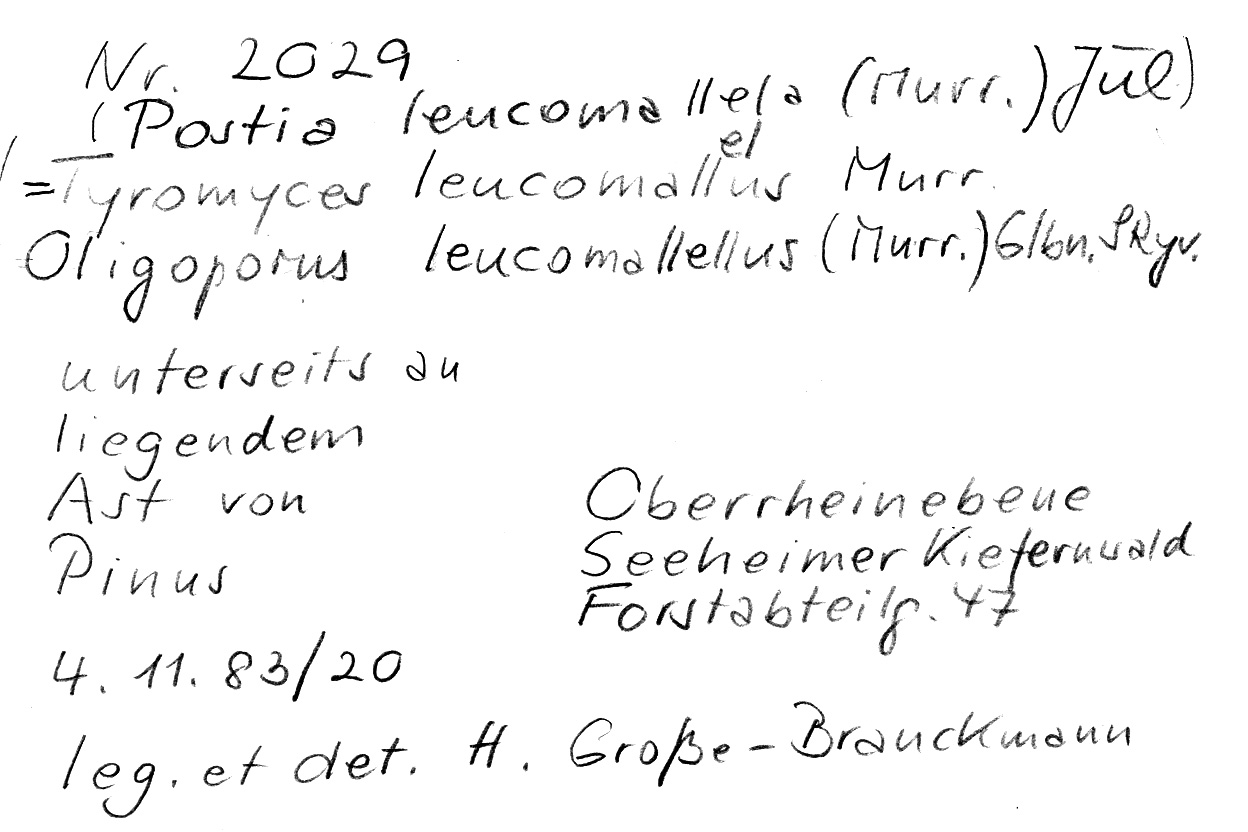 Nr. 2029
(Postia leucomallela (Murr.) Jül)
=Tyromyces leucomallellus Murr.
Oligoporus leucomallellus (Murr.) Glbn. & Ryv.
unterseits an
liegendem
Ast von
Pinus
Oberrheinebene
Seeheimer Kiefernwald
Forstabteilg. 47
4. 11. 83/20
leg. et det. H. Große-Brauckmann